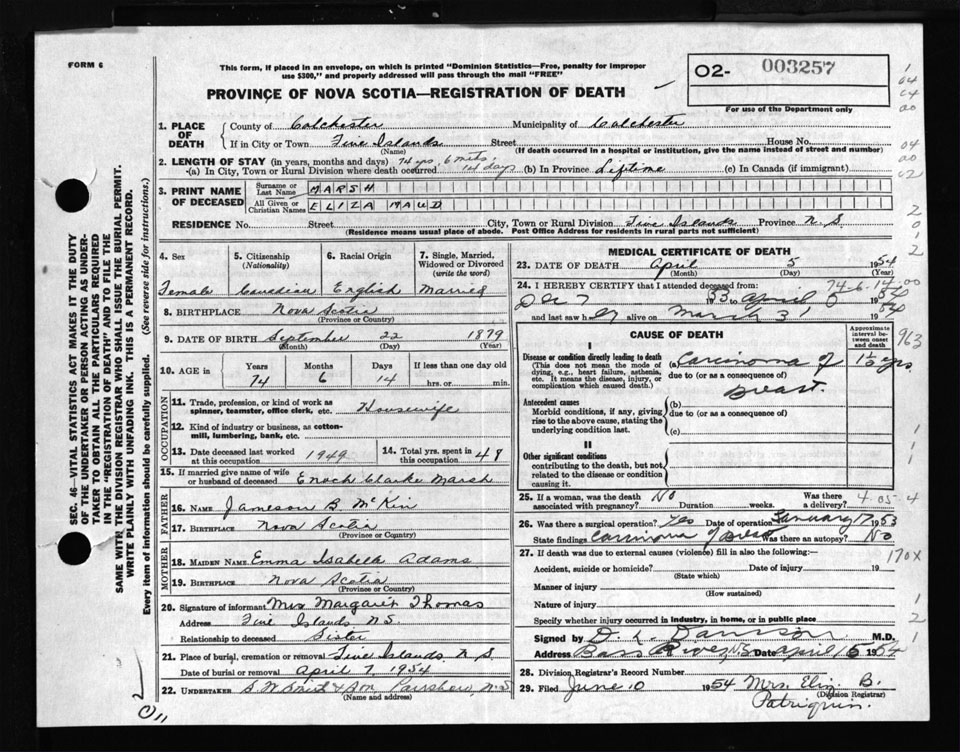 FORM 6
This form, if placed in an envelope, on which is printed "Dominion Statistics—Free, penalty for improper
use $300," and properly addressed will pass through the mail "FREE"
PROVINCE OF NOVA SCOTIA—REGISTRATION OF DEATH
O2- 003257
For use of the Department only
1. PLACE OF DEATH
County of Colchester Municipality of Colchester
If in City or Town Five Islands Street House No.
(Name) (If death occurred in a hospital or institution, give the name instead of street and number)
2. LENGTH OF STAY (in years, months and days) 74 yrs, 6 mths,
(a) In City, Town or Rural Division where death occurred 14 days (b) In Province Lifetime (c) In Canada (if immigrant)
3. PRINT NAME OF DECEASED
Surname or Last Name MARSH
All Given or Christian Names ELIZA MAUD
RESIDENCE No. Street City, Town or Rural Division Five Islands Province N.S.
(Residence means usual place of abode. Post Office Address for residents in rural parts not sufficient)
4. Sex
Female
5. Citizenship (Nationality)
Canadian
6. Racial Origin
English
7. Single, Married, Widowed or Divorced (write the word)
Married
8. BIRTHPLACE Nova Scotia
(Province or Country)
9. DATE OF BIRTH September 22 1879
(Month) (Day) (Year)
10. AGE in Years Months Days If less than one day old
74 6 14 hrs. or min.
OCCUPATION
11. Trade, profession, or kind of work as spinner, teamster, office clerk, etc. Housewife
12. Kind of industry or business, as cotton-mill, lumbering, bank, etc.
13. Date deceased last worked at this occupation 1949
14. Total yrs. spent in this occupation 48
15. If married give name of wife or husband of deceased Enoch Clarke Marsh
FATHER
16. Name Jameson B. McKim
17. Birthplace Nova Scotia
(Province or Country)
MOTHER
18. Maiden Name Emma Isabella Adams
19. Birthplace Nova Scotia
(Province or Country)
20. Signature of informant Mrs Margaret Thomas
Address Five Islands N.S.
Relationship to deceased Sister
21. Place of burial, cremation or removal Five Islands N.S.
Date of burial or removal April 7, 1954
22. UNDERTAKER & Son, N.S.
(Name and address)
MEDICAL CERTIFICATE OF DEATH
23. DATE OF DEATH April 5 1954
(Month) (Day) (Year)
74-6-14-00
24. I HEREBY CERTIFY that I attended deceased from:
Dec 7 1953 to April 5 1954
and last saw her alive on March 31 1954
CAUSE OF DEATH
Approximate interval between onset and death
I
Disease or condition directly leading to death
(This does not mean the mode of dying, e.g., heart failure, asthenia, etc. It means the disease, injury, or complication which caused death.)
(a) Carcinoma of 1½ yrs.
due to (or as a consequence of)
Breast.
Antecedent causes
Morbid conditions, if any, giving rise to the above cause, stating the underlying condition last.
(b)
due to (or as a consequence of)
(c)
II
Other significant conditions
contributing to the death, but not related to the disease or condition causing it.
25. If a woman, was the death associated with pregnancy? No Duration weeks Was there a delivery?
4-05-4
26. Was there a surgical operation? Yes Date of operation January 17 1953
State findings Carcinoma of Breast Was there an autopsy? No
27. If death was due to external causes (violence) fill in also the following:—
170X
Accident, suicide or homicide? Date of injury 19
(State which)
Manner of injury
(How sustained)
Nature of injury
Specify whether injury occurred in industry, in home, or in public place
Signed by D. L. M.D.
Address Bass River, N.S. Date April 6 1954
28. Division Registrar's Record Number
29. Filed June 10 1954 Mrs. Eliz. B.
(Division Registrar)
Patriquin.
SEC. 46—VITAL STATISTICS ACT MAKES IT THE DUTY
OF THE UNDERTAKER OR PERSON ACTING AS UNDER-
TAKER TO OBTAIN ALL THE PARTICULARS REQUIRED
IN THE "REGISTRATION OF DEATH" AND TO FILE THE
SAME WITH THE DIVISION REGISTRAR WHO SHALL ISSUE THE BURIAL PERMIT.
WRITE PLAINLY WITH UNFADING INK. THIS IS A PERMANENT RECORD.
Every item of information should be carefully supplied. (See reverse side for instructions.)
1
04
04
00
04
00
02
2
0
1
2
963
1
1
1
1
2
1